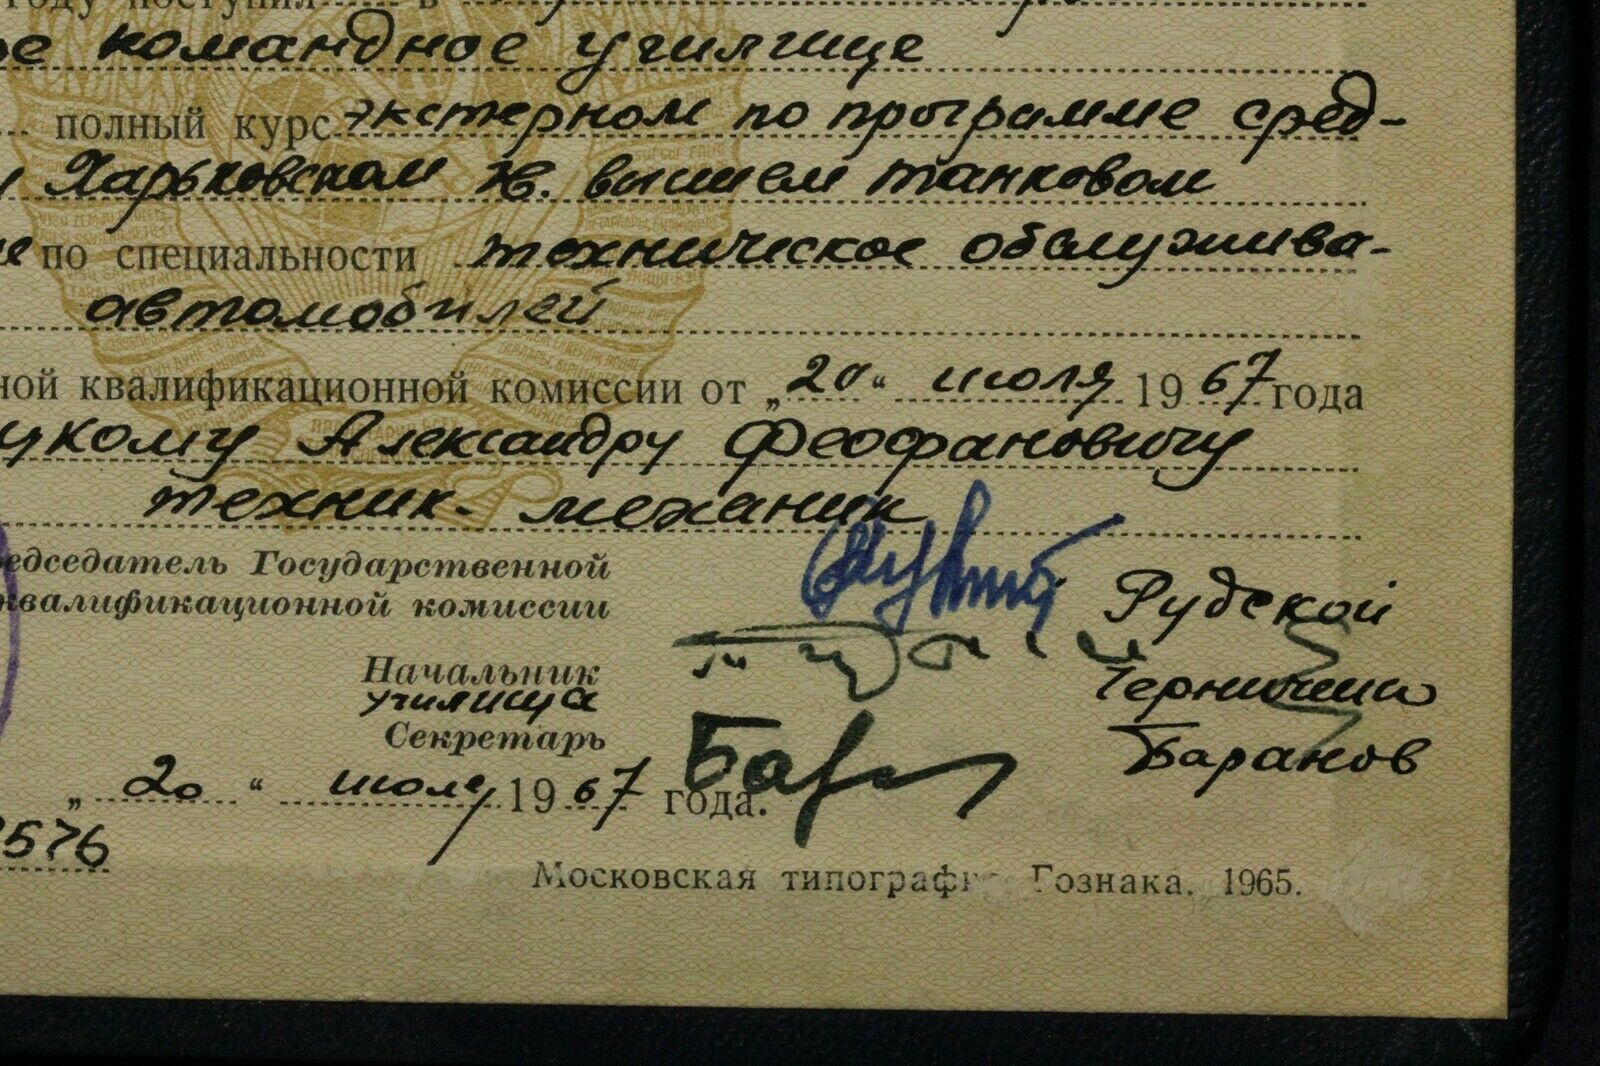 году поступил в
командное училище
полный курс экстерном по программе сред-
Харьковском гв. высшем танковом
по специальности техническое обслужива-
автомобилей
ной квалификационной комиссии от „20“ июля 1967 года
цкому Александру Феофановичу
техник-механик
редседатель Государственной
квалификационной комиссии
Рудской
Начальник
училища
Секретарь
Баранов
„20“ июля 1967 года.
576
Московская типография Гознака. 1965.